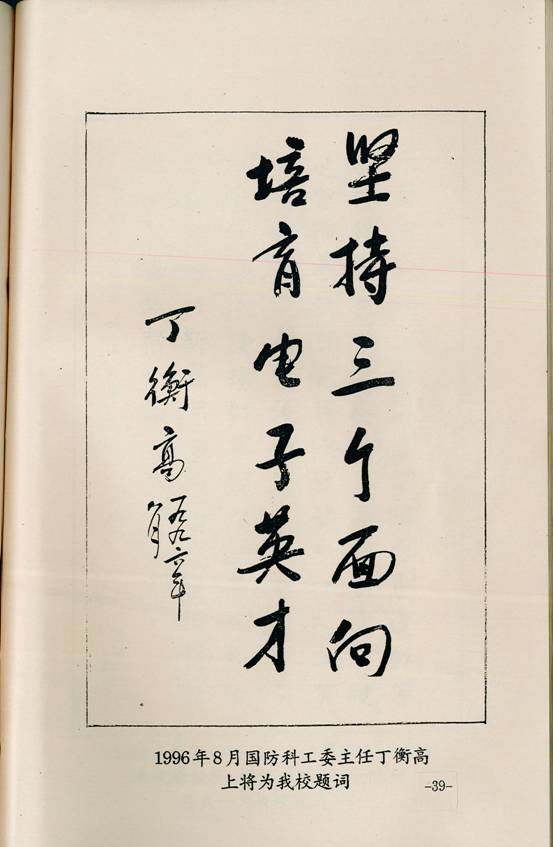 坚持三个面向
培育电子英才
丁衡高
一九九六年
八月
1996年8月国防科工委主任丁衡高
上将为我校题词
-39-